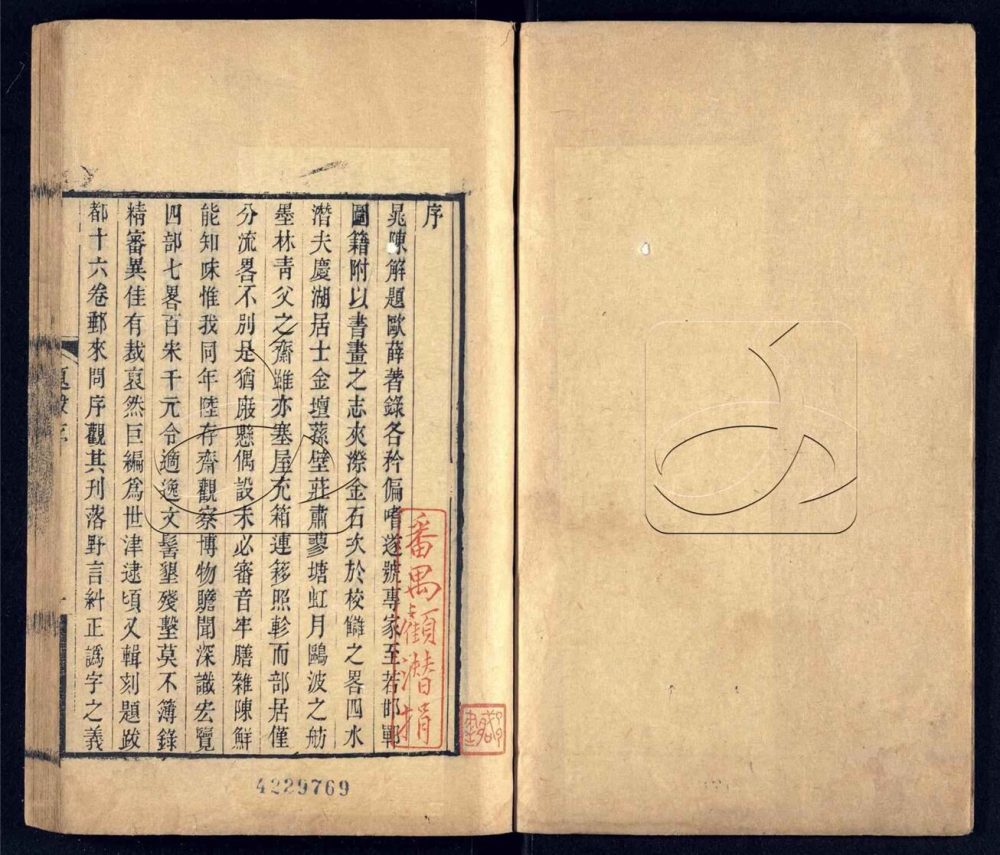 序
晁陳解題歐薛著錄各矜偏嗜遂號專家至若邯鄲
圖籍附以書畫之志夾漈金石次於校讎之畧四水
潛夫慶湖居士金壇蓀壁莊肅蓼塘虹月鷗波之舫
墨林青父之齋雖亦塞屋充箱連簃照軫而部居僅
分流畧不別是猶廠懸偶設未必審音牢膳雜陳鮮
能知味惟我同年陸存齋觀察博物贍聞深識宏覽
四部七畧百宋千元令適逸文髻墾殘墼莫不簿錄
精審異佳有裁裒然巨編為世津逮頃又輯刻題跋
都十六卷郵來問序觀其刊落野言糾正譌字之義
番禺顧潛捐
4229769